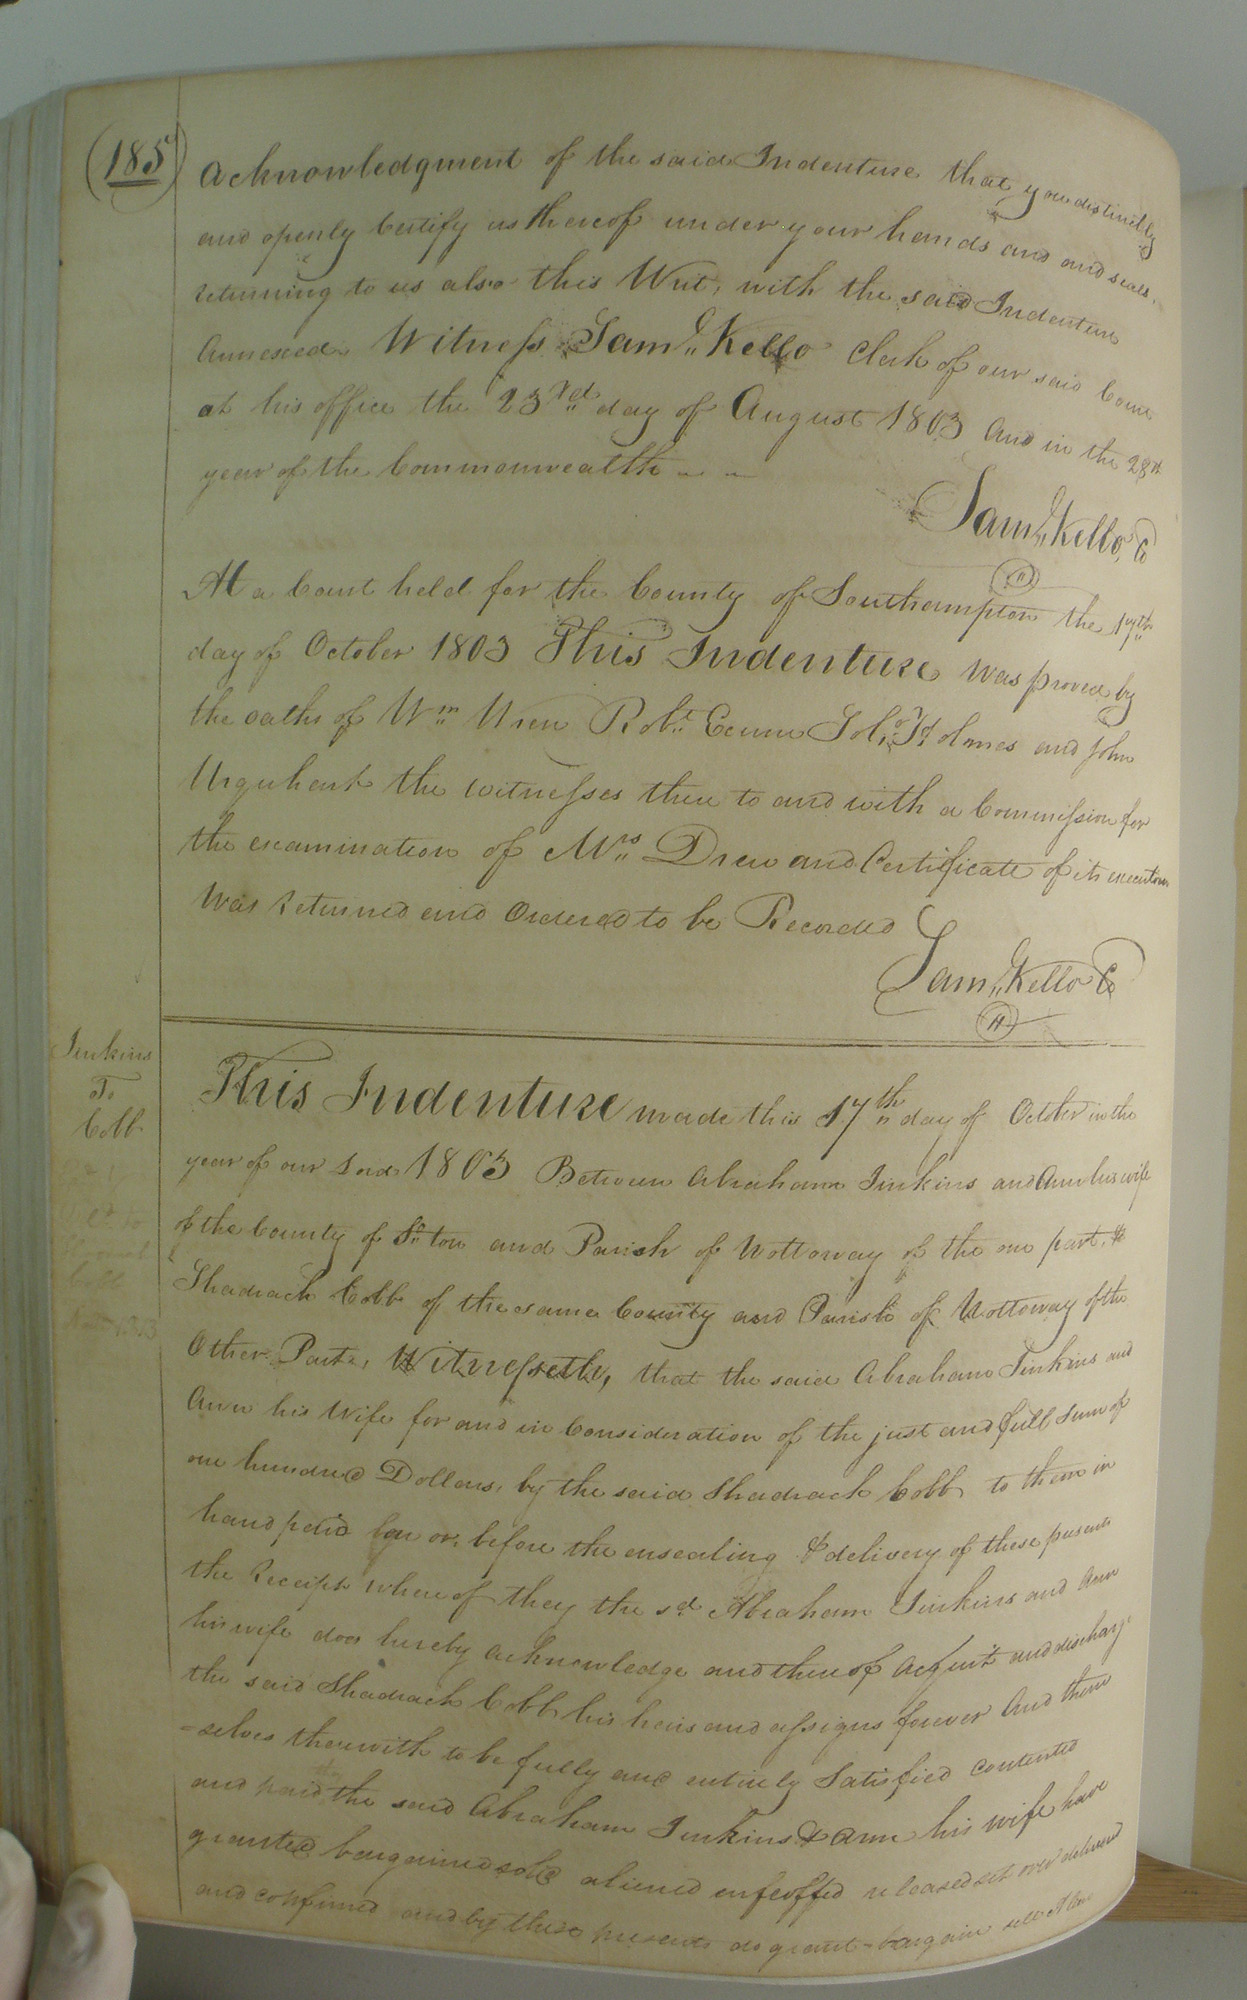 (185)
acknowledgment of the said Indenture that you distinctly
and openly Certify us thereof under your hands and and seals,
returning to us also this Writ, with the said Indenture
Annexed. Witness Saml. Kello Clerk of our said Court
at his office the 23rd day of August 1803 And in the 28th
year of the Commonwealth
Saml. Kello, C
At a Court held for the County of Southampton the 17th
day of October 1803 This Indenture was proved by
the oaths of Wm. Uren Robt. Solo. Holmes and John
Urquhart the witnesses there to and with a Commission for
the examination of Mrs. Drew and Certificate of its execution
Was returned and Ordered to be Recorded
Saml. Kello C
Jinkins
To
Cobb
This Indenture made this 17th day of October in the
year of our Lord 1803 Between Abraham Jinkins and Ann his wife
of the County of So. ton and Parish of Nottoway of the one part, &
Shadrach Cobb of the same County and Parish of Nottoway of the
Other Part, Witnesseth, that the said Abraham Jinkins and
Ann his Wife for and in Consideration of the just and full Sum of
one hundred Dollars, by the said Shadrach Cobb to them in
hand paid or before the ensealing & delivery of these presents
the Receipt where of they the sd. Abraham Jinkins and Ann
his wife does hereby acknowledge and there of acquit and discharge
the said Shadrach Cobb his heirs and assigns forever And them
=selves therewith to be fully and entirely Satisfied Contented
and paid the said Abraham Jinkins & Ann his wife have
granted bargained sold aliened enfeoffed released set over delivered
and confirmed and by these presents do grant bargain sell